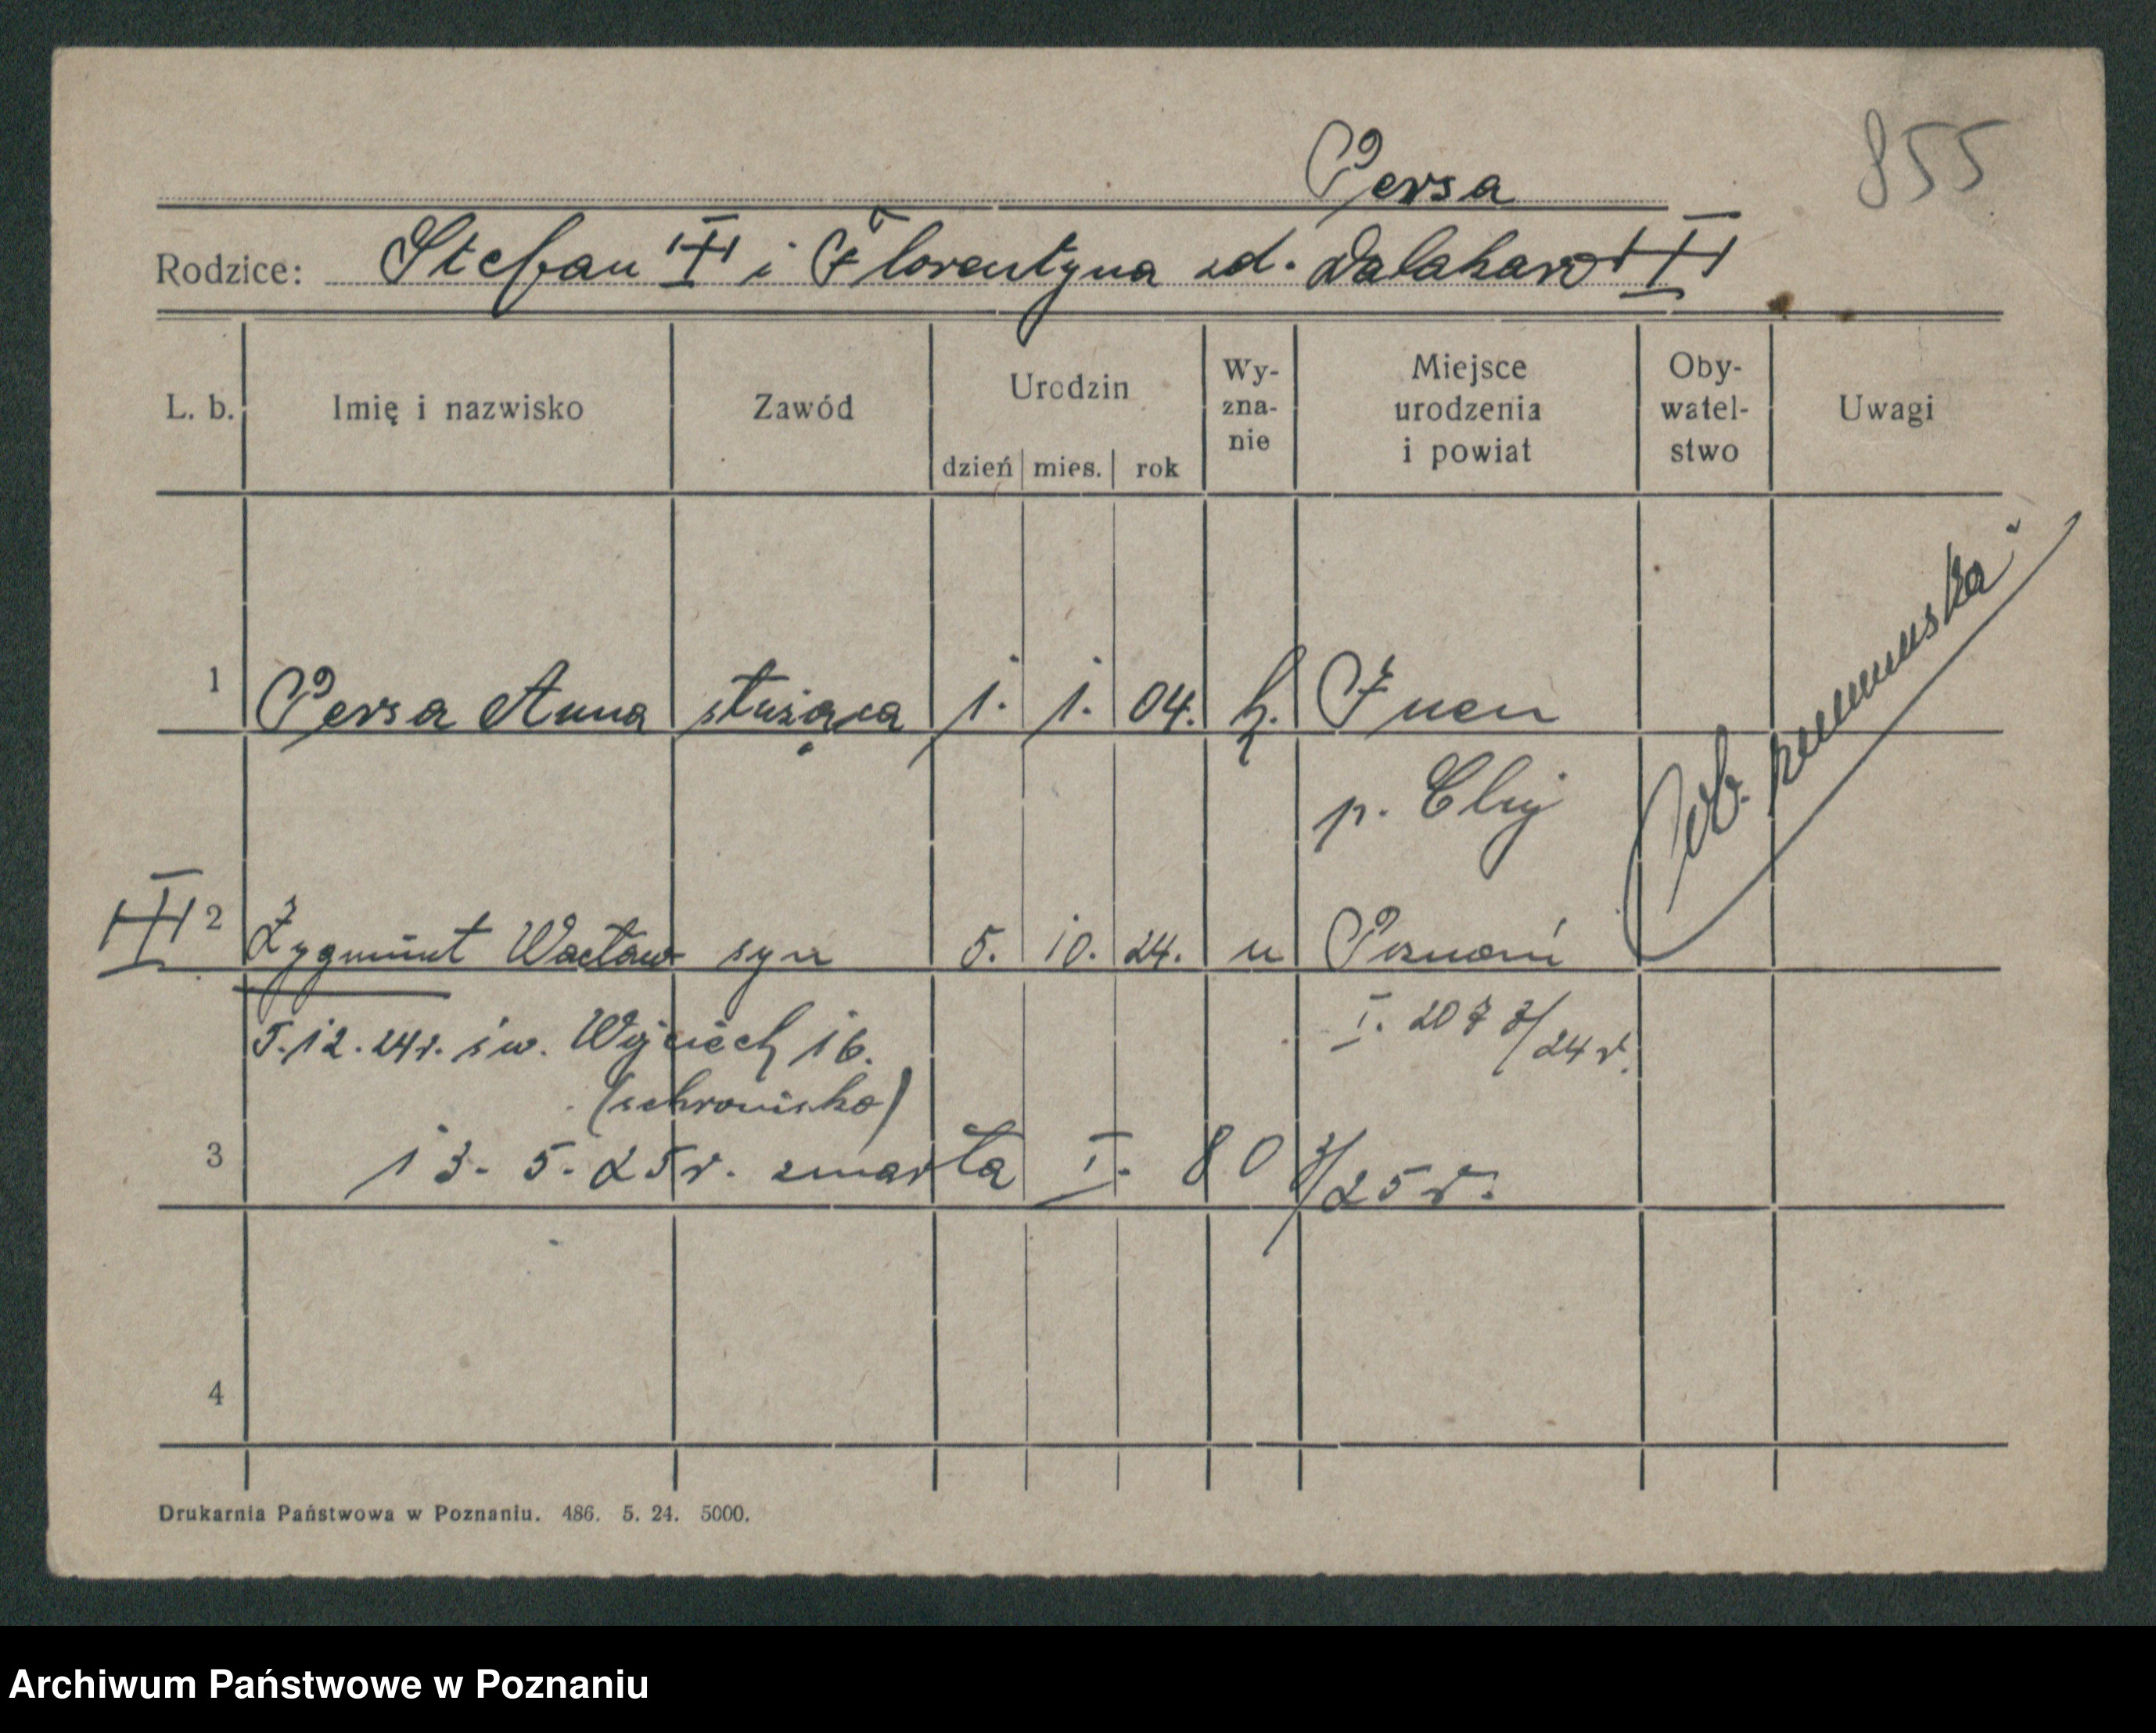 Persa
855
Rodzice: Stefan i Florentyna zd.
L. b. Imię i nazwisko Zawód Urodzin dzień mies. rok Wy-zna-nie Miejsce urodzenia i powiat Oby-watel-stwo Uwagi
1 Persa Anna służąca 1. 1. 04. k. Fuen
p. Cluj
2 Zygmunt Wacław syn 5. 10. 24. u Poznań
5.12.24r. św. Wojciech 16. I. 207 3/24 r.
(schronisko)
3 13. 5. 25 r. zmarła I. 80 3/25 r.
4
Drukarnia Państwowa w Poznaniu. 486. 5. 24. 5000.
Archiwum Państwowe w Poznaniu